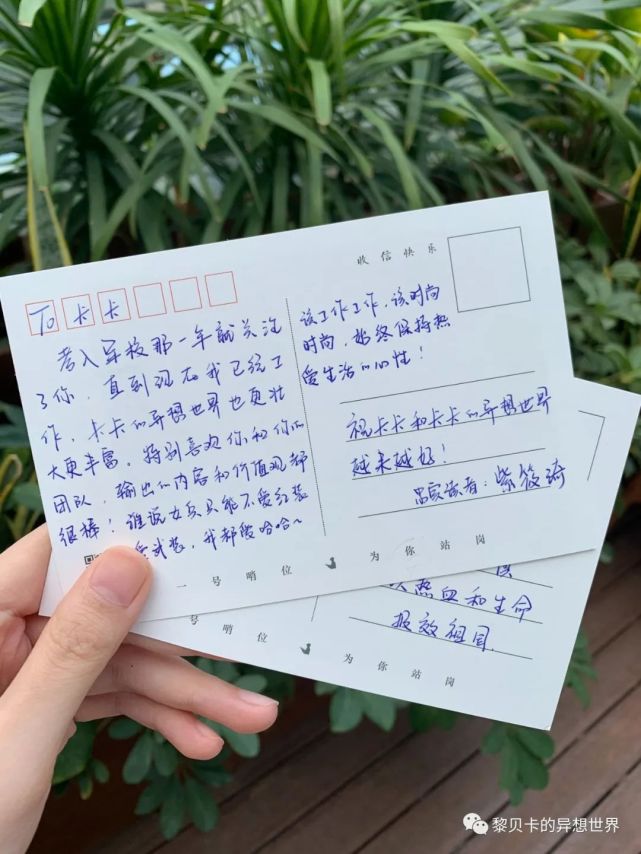 收信快乐
To卡卡
考入军校那一年就关注
了你，直到现在我已经工
作，卡卡的异想世界也更壮
大更丰富。特别喜欢你和你的
团队，输出的内容和价值观都
很棒！谁说女兵只能不爱红装
爱武装，我都爱哈哈～
该工作工作，该时尚
时尚，始终保持热
爱生活的心性！
祝卡卡和卡卡的异想世界
越来越好！
读者：紫筱琦
一号哨位 为你站岗
热血和生命
报效祖国
号哨位 为你站岗
黎贝卡的异想世界